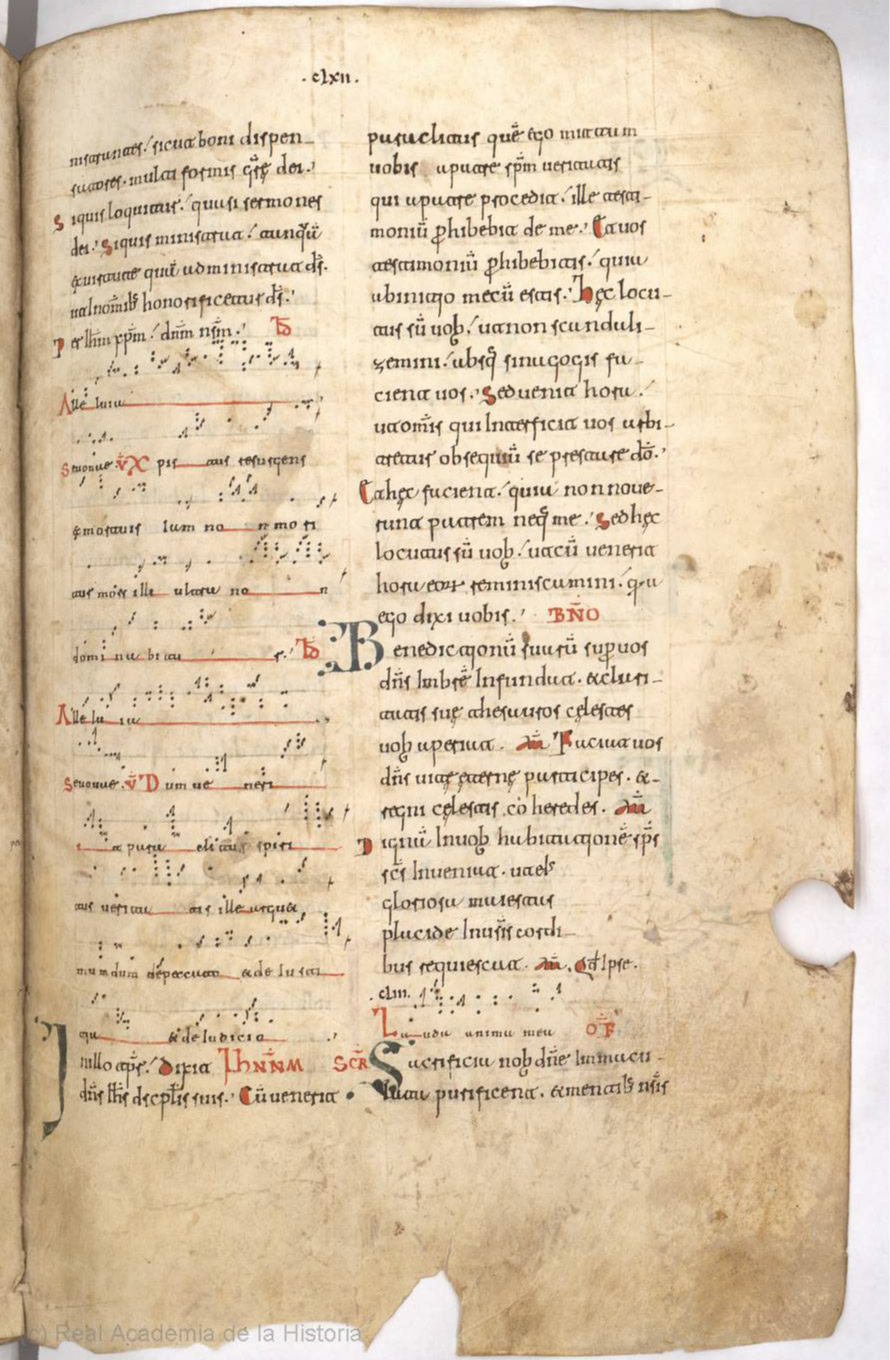 ·clxii·
nistrantes / sicut boni dispen-
satores · multiformis grȩ dei.
Siquis loquitur / quasi sermones
dei. Siquis ministrat / tanquā
ex uirtute quā administrat dš.
ut inomīb honorificetur dš.
Per ihm xp̄m / dnm nsm. TB
Alleluia
Seuouae. V̄ Xpistus resurgens
ex mortuis Iam non mori
tur mors illi ultra non
dominabitur. TB
Alleluia
Seuouae. V̄ Dum uene
rit paraclitus spiri
tus ueritatis ille arguet
mundum de peccato et de Iusti
tia et de Iudicio.
Inillo tp̄r. Dixit IhNNM SCR
dn̄s ihs discplis suis. Cū uenerit
paraclitus quē ego mittam
uobis a patre sp̄m ueritatis
qui a patre procedit / ille testi-
moniū phibebit de me. Et uos
testimoniū phibebitis / quia
ab initio mecū estis. Hȩc locu-
tus sū uob / ut non scandali-
zemini / absq sinagogis fa-
cient uos. Sed uenit hora /
ut om̄is qui Interficit uos arbi-
tretur obsequiū se prestare dō.
Et hȩc facient / quia non noue-
runt patrem neq me. Sed hȩc
locutus sū uob / ut cū uenerit
hora eorum reminiscamini · qia
ego dixi uobis. BN̄O
Benedictionū suarū sup uos
dn̄s Imbrē Infundat · et clari-
tatis suȩ thesauros cȩlestes
uob aperiat. am̄ Faciat uos
dn̄s uitȩ eternȩ participes · et
regni cȩlestis coheredes. am̄
Dignā In uob habitationē sps
scs Inueniat · ut eis
gloriosa maiestas
placide In uris cordi-
bus requiescat. am̄. Qd Ipse.
·clm·
Lauda anima mea OF
Sacrificia nob dn̄e Immacu-
lata purificent · et mentib nr̄is
(c) Real Academia de la Historia